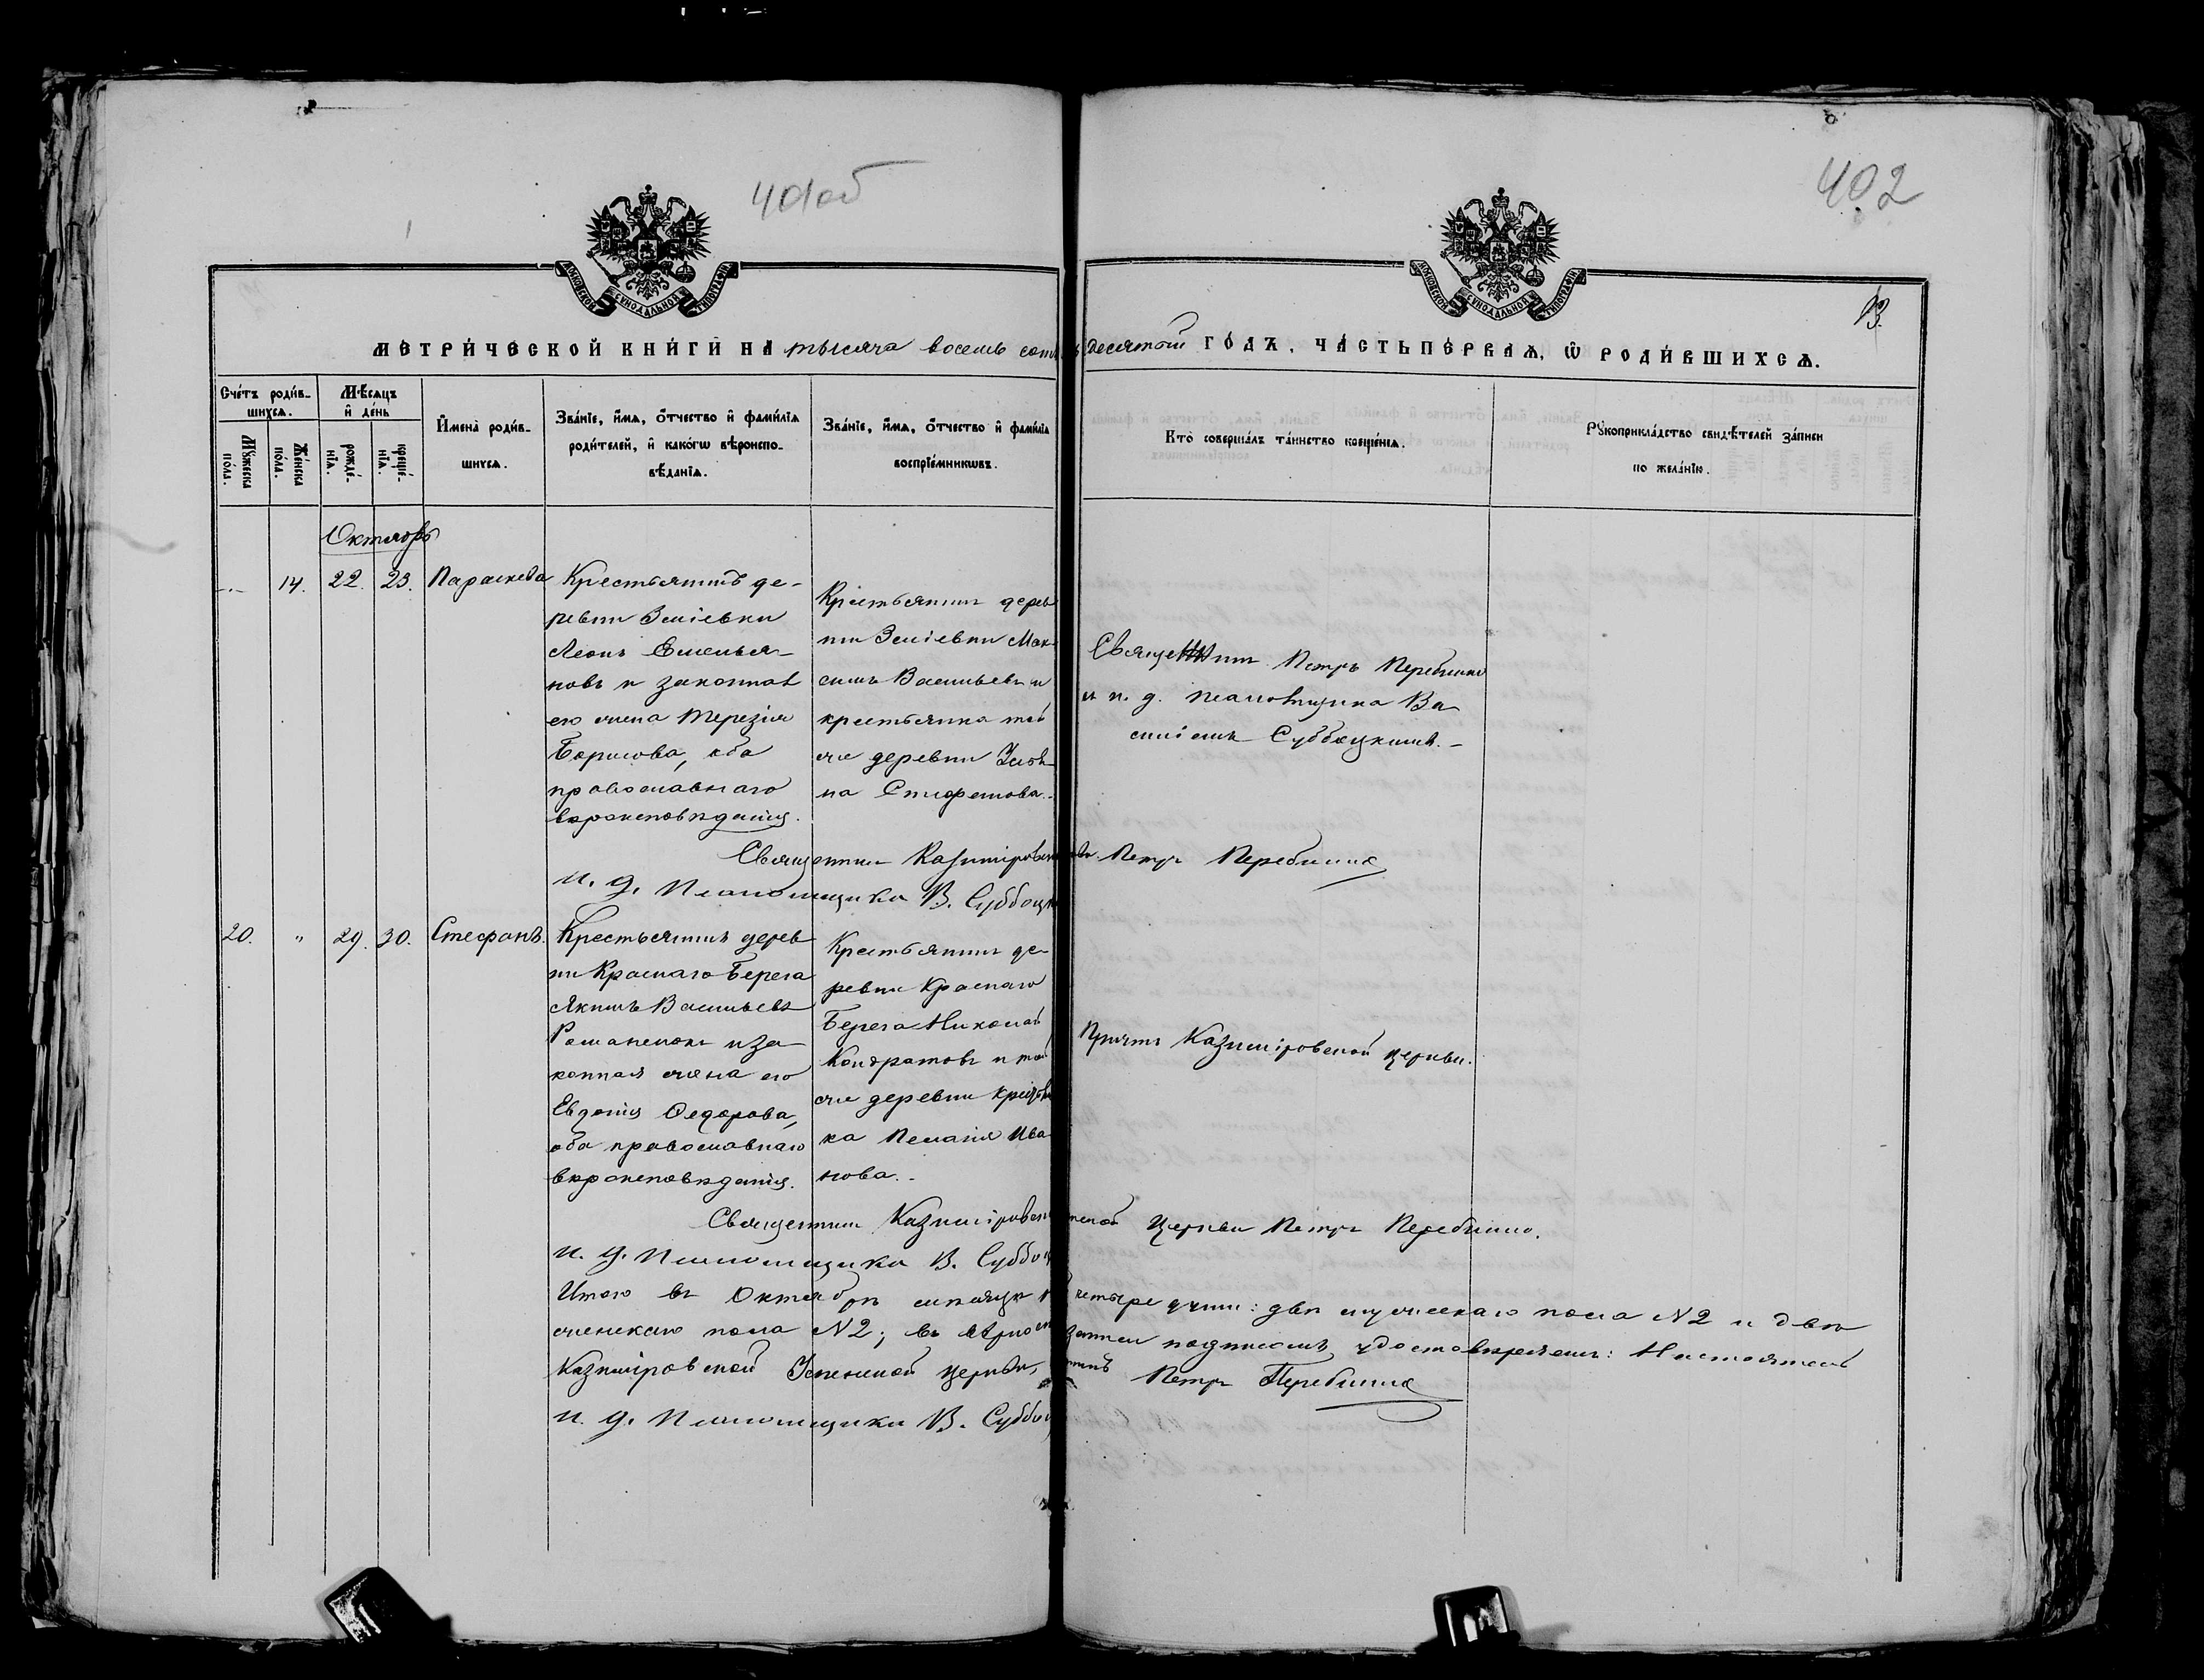 401об
402
МОСКОВСКОЙ СѴНОДАЛЬНОЙ ТИПОГРАФІИ
МОСКОВСКОЙ СѴНОДАЛЬНОЙ ТИПОГРАФІИ
13.
МЕТРИ́ЧЕСКОЙ КНИ́ГИ НА тысяча восемь сотъ
десятой ГО́ДЪ, ЧА́СТЬ ПЕ́РВАѦ, Ѿ РОДИ́ВШИХСѦ.
Сче́тъ роди́в-
шихсѧ.
Мꙋ́жеска по́ла.
Же́нска по́ла.
Мѣ́сѧцъ
и҆ де́нь
рожде́-
нїѧ.
креще́-
нїѧ.
И҆мена̀ роди́в-
шихсѧ.
Зва́нїе, и҆́мѧ, ѻ҆́тчество и҆ фами́лїѧ
роди́телей, и҆ како́гѡ вѣроиспо-
вѣ́данїѧ.
Зва́нїе, и҆́мѧ, ѻ҆́тчество и҆ фами́лїѧ
воспрїе́мникѡвъ.
Кто̀ соверша́лъ та́инство креще́нїѧ.
Рꙋкоприкла́дство свидѣ́телей за́писи
по жела́нїю.
Октябрь
14. 22. 23. Параскева
Крестьянинъ де-
ревни Зміевки
Леонъ Емелья-
новъ и законная
его жена Терезія
Борисова, оба
православнаго
вѣроисповѣданія.
Крестьянинъ дерев
ни Зміевки Мак-
симъ Васильевъ и
крестьянка той
же деревни Улья-
на Стефанова.
Священникъ Петръ
и и. д. псаломщика Ва
силіемъ Суббоцкимъ.
Священникъ Казимировской Петръ
и. д. Псаломщика В. Суббоцк
20. " 29. 30. Стефанъ.
Крестьянинъ дерев
ни Краснаго Берега
Якимъ Васильевъ
Романенокъ и за-
конная жена его
Евдокія Ѳедорова,
оба православнаго
вѣроисповѣданія.
Крестьянинъ де-
ревни Краснаго
Берега Николай
Кондратовъ и той
же деревни крестьян
ка Пелагія Ива
нова.
Причтъ Казиміровской церкви.
Священникъ Казиміровской церкви Петръ
и. д. Псаломщика В. Суббоц
Итого въ Октябрѣ мѣсяцѣ четыре души: двѣ мужескаго пола №2 и двѣ
женскаго пола №2; въ вѣрности записи подписомъ удостовѣряемъ: Настоятель
Казиміровской Успенской церкви, Петръ
и. д. Псаломщика В. Суббоц